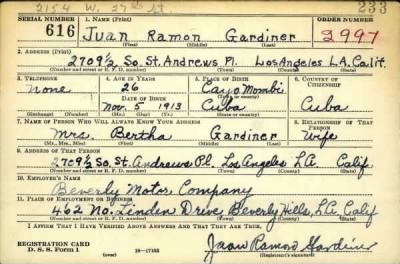 2154 W. 27th St. 233
SERIAL NUMBER 1. NAME (Print) ORDER NUMBER
616 Juan Ramon Gardiner 2997
(First) (Middle) (Last)
2. ADDRESS (Print)
2709½ So. St. Andrews Pl. Los Angeles L.A. Calif.
(Number and street or R. F. D. number) (Town) (County) (State)
3. TELEPHONE 4. AGE IN YEARS 5. PLACE OF BIRTH 6. COUNTRY OF CITIZENSHIP
None 26 Cayo Mombi Cuba
DATE OF BIRTH
Nov. 5 1913 Cuba
(Exchange) (Number) (Mo.) (Day) (Yr.) (State or country)
7. NAME OF PERSON WHO WILL ALWAYS KNOW YOUR ADDRESS 8. RELATIONSHIP OF THAT PERSON
Mrs. Bertha Gardiner Wife
(Mr., Mrs., Miss) (First) (Middle) (Last)
9. ADDRESS OF THAT PERSON
2709½ So. St. Andrews Pl. Los Angeles L.A. Calif.
(Number and street or R. F. D. number) (Town) (County) (State)
10. EMPLOYER'S NAME
Beverly Motors Company
11. PLACE OF EMPLOYMENT OR BUSINESS
462 No. Linden Drive Beverly Hills, L.A. Calif
(Number and street or R. F. D. number) (Town) (County) (State)
I AFFIRM THAT I HAVE VERIFIED ABOVE ANSWERS AND THAT THEY ARE TRUE.
REGISTRATION CARD
D. S. S. Form 1 16-17105 Juan Ramon Gardiner
(over) (Registrant's signature)